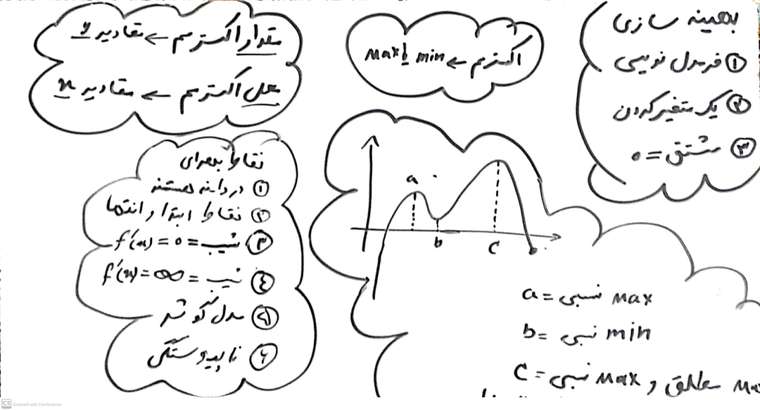 بهینه سازی
① فرمول نویسی
② یک متغیر کردن
③ مشتق = ۰
اکسترمم ← min یا max
مقدار اکسترمم ← مقادیر y
محل اکسترمم ← مقادیر x
نقاط بحرانی
① در دامنه هستند
② نقاط ابتدا و انتها
③ شیب = ۰ = f'(x)
④ شیب = ∞ = f'(x)
⑤ مدل گوشه
⑥ ناپیوستگی
a
b
c
a = نسبی max
b = نسبی min
c = نسبی max و مطلق
CamScanner